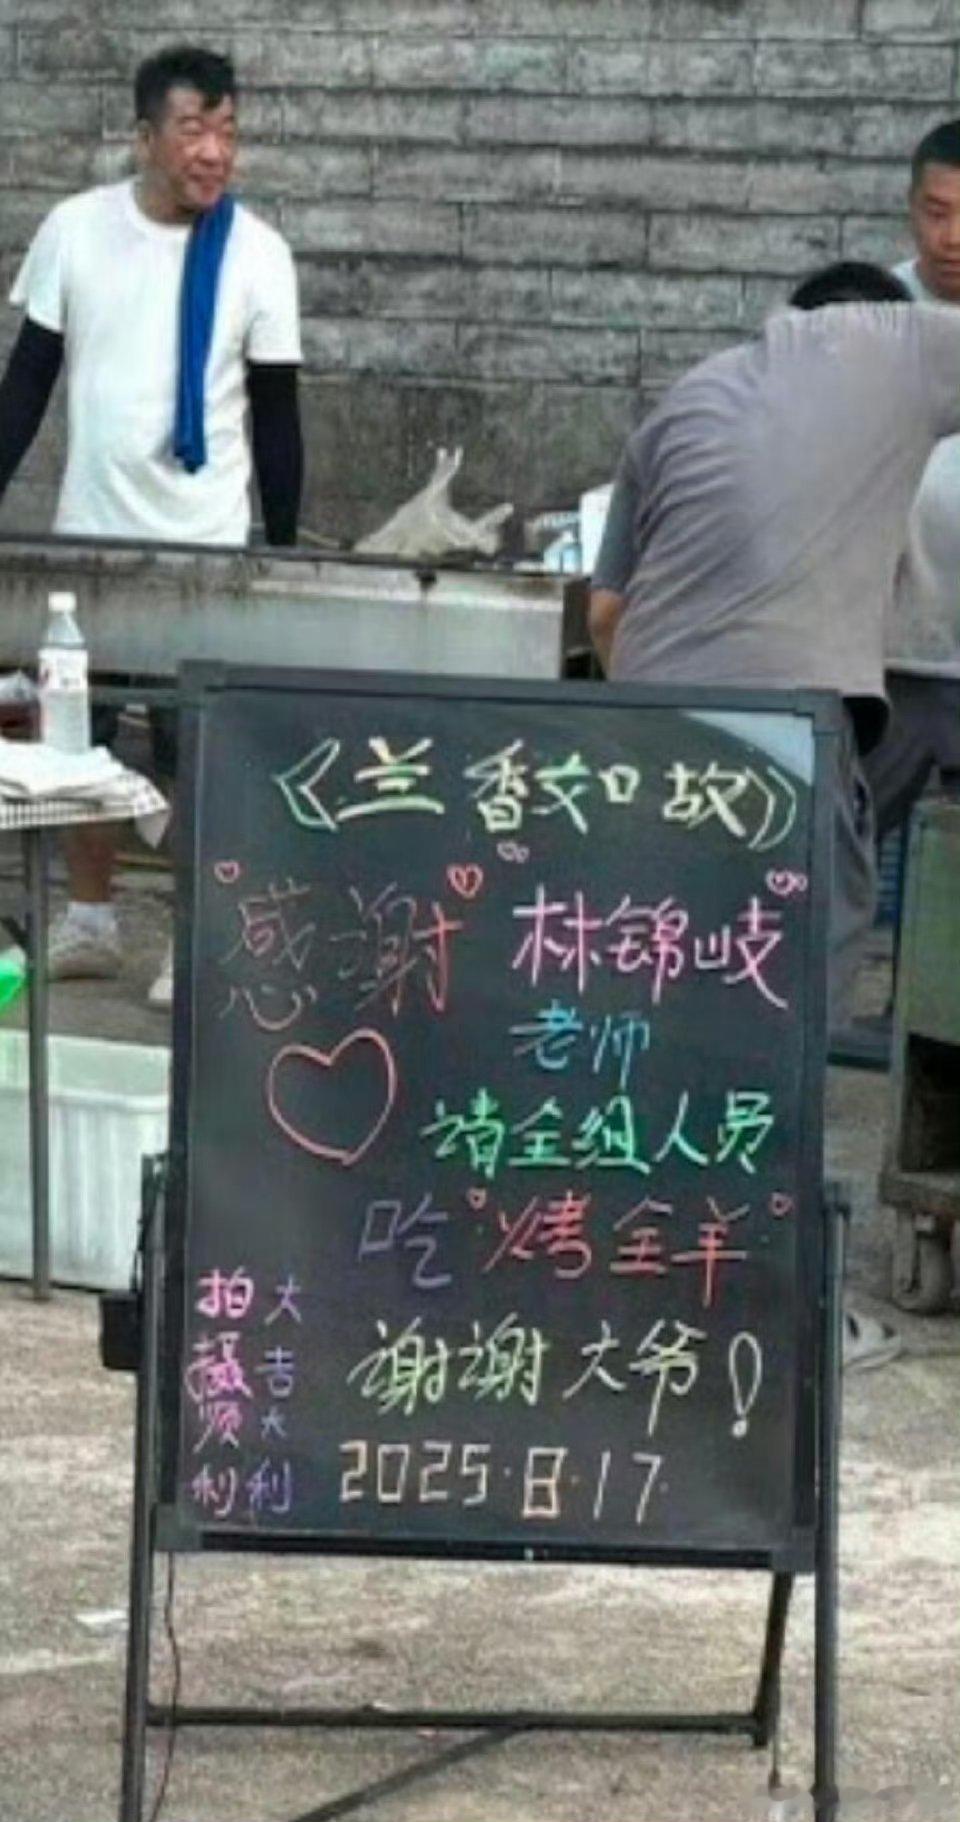 《兰香如故》
感谢 林锦岐
老师
请全组人员
吃"烤全羊"
谢谢大爷!
2025.8.17
拍摄顺利
大吉大利